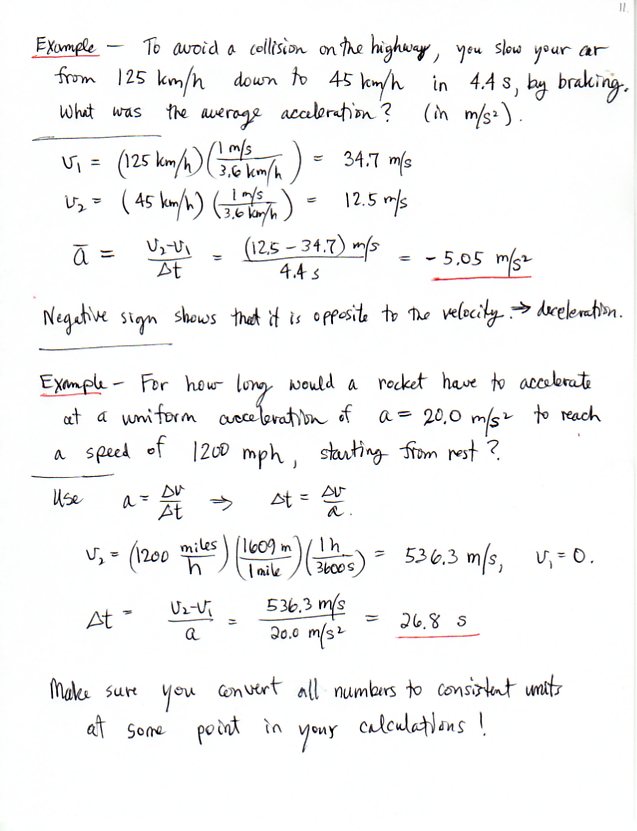 11.
Example — To avoid a collision on the highway, you slow your car
from 125 km/h down to 45 km/h in 4.4 s, by braking.
What was the average acceleration? (in m/s²).
v₁ = (125 km/h)(1 m/s / 3.6 km/h) = 34.7 m/s
v₂ = (45 km/h)(1 m/s / 3.6 km/h) = 12.5 m/s
ā = v₂-v₁ / Δt = (12.5 – 34.7) m/s / 4.4 s = - 5.05 m/s²
Negative sign shows that it is opposite to the velocity. ⇒ deceleration.
Example – For how long would a rocket have to accelerate
at a uniform acceleration of a = 20.0 m/s² to reach
a speed of 1200 mph, starting from rest?
Use a = Δv / Δt ⇒ Δt = Δv / a.
v₂ = (1200 miles / h)(1609 m / 1 mile)(1 h / 3600 s) = 536.3 m/s, v₁ = 0.
Δt = v₂-v₁ / a = 536.3 m/s / 20.0 m/s² = 26.8 s
Make sure you convert all numbers to consistent units
at some point in your calculations!